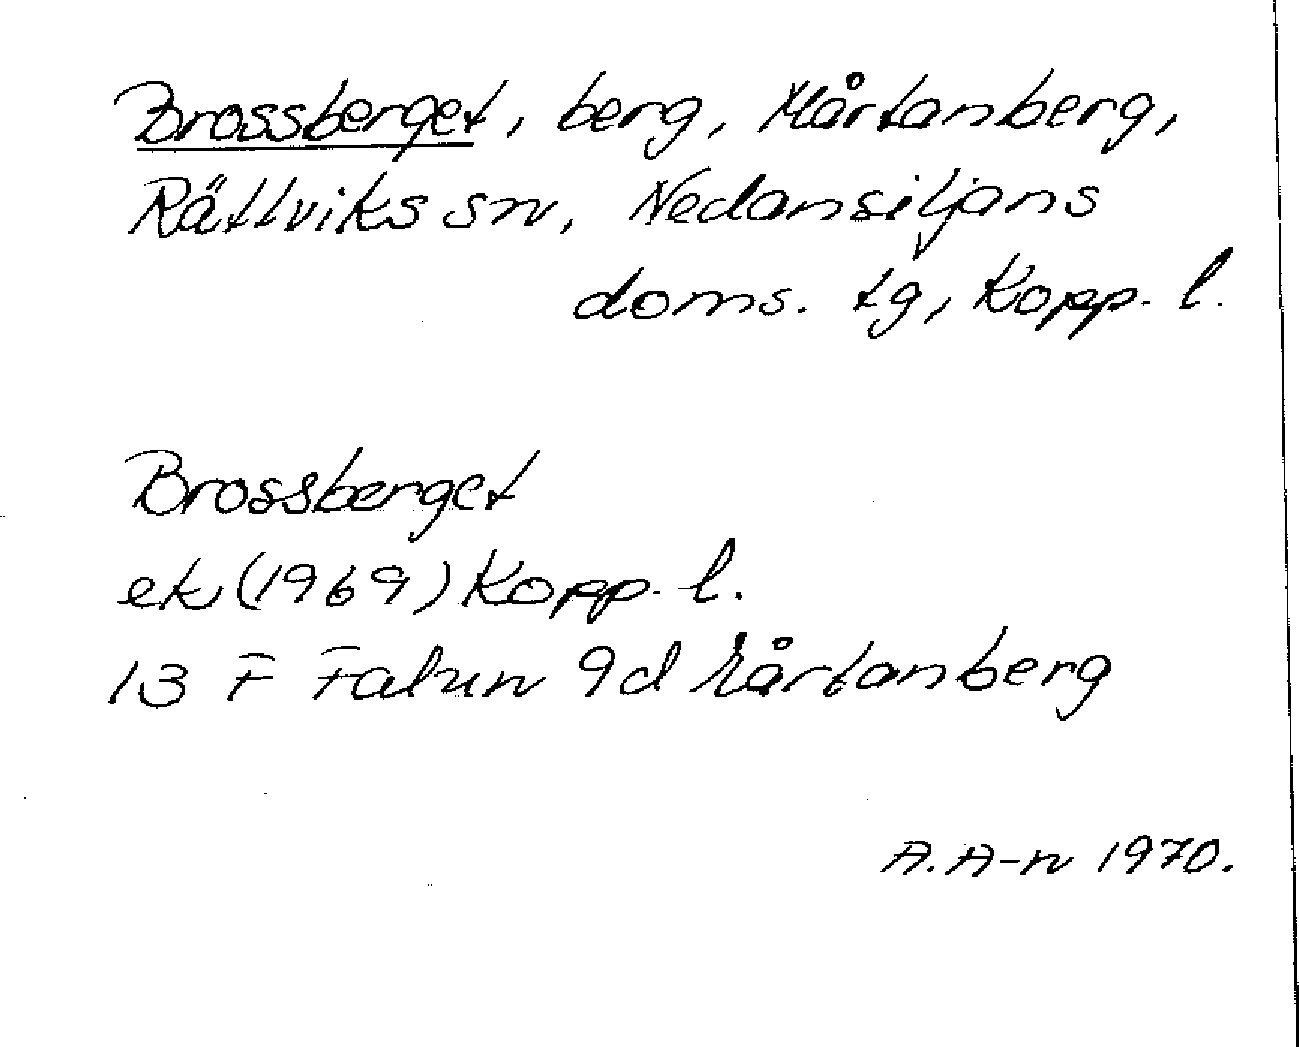 Brossberget, berg, Mårtanberg,
Rättviks sn, Nedansiljans
doms. tg, Kopp. l.
Brossberget
ek (1969) Kopp. l.
13 F Falun 9d Mårtanberg
A. A-n 1970.